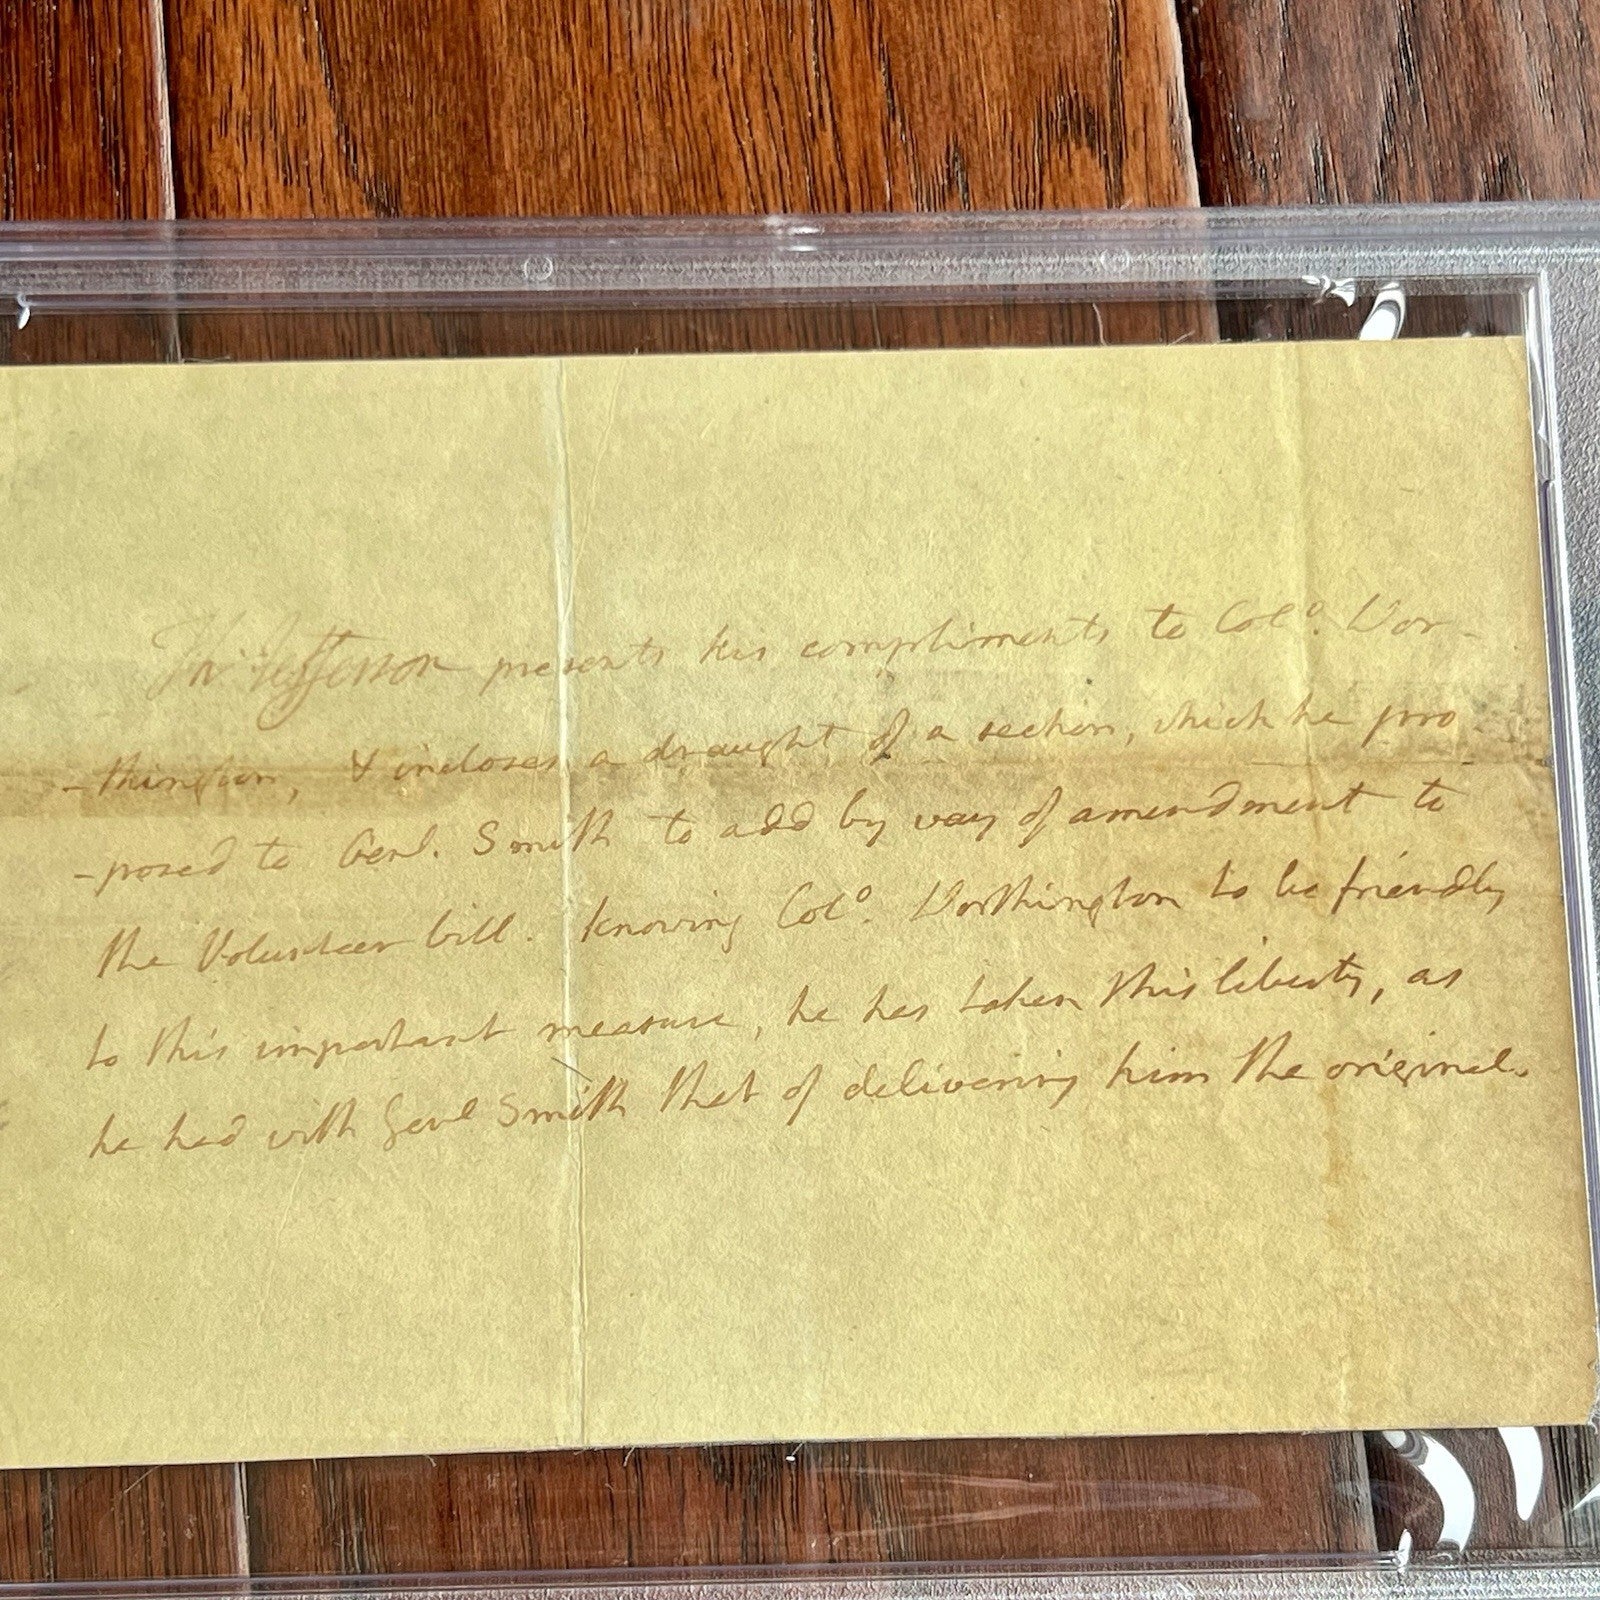 Th: Jefferson presents his compliments to Colo. Wor-
-thington, & incloses a draught of a section, which he pro-
-posed to Genl. Smith to add by way of amendment to
the Volunteer bill. knowing Colo. Worthington to be friendly
to this important measure, he has taken this liberty, as
he had with Genl Smith that of delivering him the original.